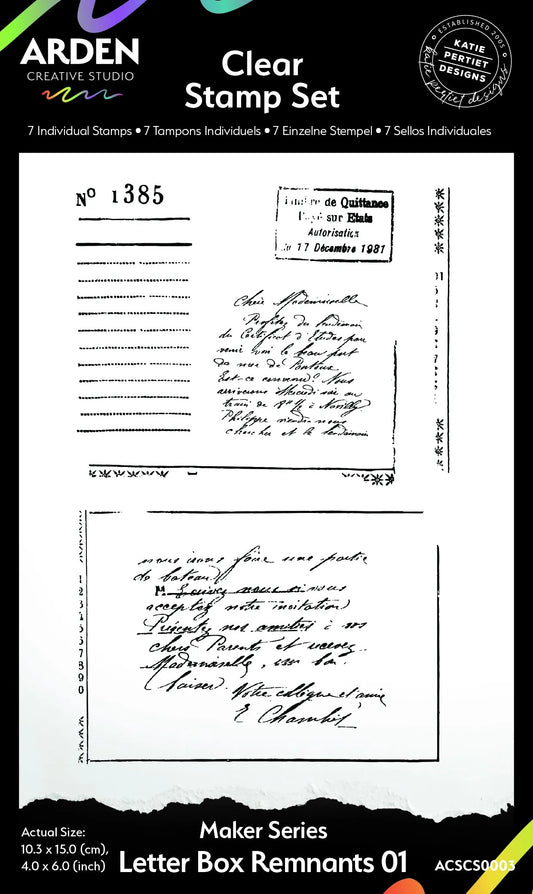 ARDEN
CREATIVE STUDIO
Clear
Stamp Set
ESTABLISHED 2005
KATIE
PERTIET
DESIGNS
katie pertiet designs
7 Individual Stamps • 7 Tampons Individuels • 7 Einzelne Stempel • 7 Sellos Individuales
Nº 1385
de Quittance
sur Etats
Autorisation
17 Décembre 1981
Chère Mademoiselle
Profitez du lendemain
du Certificat d'Etudes pour
venir voir le beau port
de mer de
Est-ce convenu? Nous
arriverons Mercredi soir au
train de 8h ½ à
Philippe viendra nous
chercher et le lendemain
nous irons faire une partie
de bateau
M. nous
acceptez notre invitation
Présentez nos amitiés à vos
chers Parents et recevez
Mademoiselle, un bon
baiser. Votre collègue et amie
E. Chambit
1
2
3
5
7
8
9
0
Actual Size:
10.3 x 15.0 (cm),
4.0 x 6.0 (inch)
Maker Series
Letter Box Remnants 01
ACSCS0003